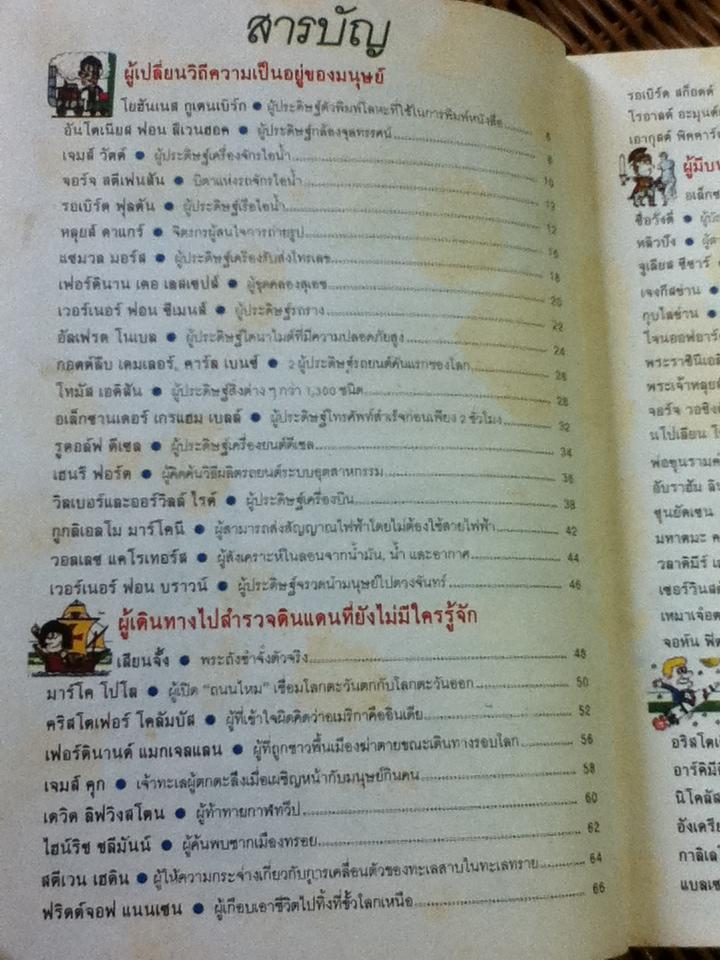 สารบัญ
ผู้เปลี่ยนวิถีความเป็นอยู่ของมนุษย์
โยฮันเนส กูเตนเบิร์ก ● ผู้ประดิษฐ์ตัวพิมพ์โลหะที่ใช้ในการพิมพ์หนังสือ 6
อันโตเนียส ฟอน ลีเวนฮอค ● ผู้ประดิษฐ์กล้องจุลทรรศน์ 8
เจมส์ วัตต์ ● ผู้ประดิษฐ์เครื่องจักรไอน้ำ 10
จอร์จ สตีเฟนสัน ● บิดาแห่งรถจักรไอน้ำ 12
รอเบิร์ต ฟุลตัน ● ผู้ประดิษฐ์เรือไอน้ำ 12
หลุยส์ ดาแกร์ ● จิตรกรผู้สนใจการถ่ายรูป 16
แซมวล มอร์ส ● ผู้ประดิษฐ์เครื่องรับส่งโทรเลข 18
เฟอร์ดินาน เดอ เลสเซปส์ ● ผู้ขุดคลองสุเอซ 20
เวอร์เนอร์ ฟอน ซีเมนส์ ● ผู้ประดิษฐ์รถราง 22
อัลเฟรด โนเบล ● ผู้ประดิษฐ์ไดนาไมต์ที่มีความปลอดภัยสูง 24
กอตต์ลีบ เดมเลอร์, คาร์ล เบนซ์ ● 2 ผู้ประดิษฐ์รถยนต์คันแรกของโลก 26
โทมัส เอดิสัน ● ผู้ประดิษฐ์สิ่งต่าง ๆ กว่า 1,300 ชนิด 28
อเล็กซานเดอร์ เกรแฮม เบลล์ ● ผู้ประดิษฐ์โทรศัพท์สำเร็จก่อนเพียง 2 ชั่วโมง 32
รูดอล์ฟ ดีเซล ● ผู้ประดิษฐ์เครื่องยนต์ดีเซล 34
เฮนรี ฟอร์ด ● ผู้คิดค้นวิธีผลิตรถยนต์ระบบอุตสาหกรรม 36
วิลเบอร์และออร์วิลล์ ไรต์ ● ผู้ประดิษฐ์เครื่องบิน 38
กูกลิเอลโม มาร์โคนี ● ผู้สามารถส่งสัญญาณไฟฟ้าโดยไม่ต้องใช้สายไฟฟ้า 42
วอลเลซ แคโรเทอร์ส ● ผู้สังเคราะห์ไนลอนจากน้ำมัน, น้ำ และอากาศ 44
เวอร์เนอร์ ฟอน บราวน์ ● ผู้ประดิษฐ์จรวดนำมนุษย์ไปดวงจันทร์ 46
ผู้เดินทางไปสำรวจดินแดนที่ยังไม่มีใครรู้จัก
เสียนจั้ง ● พระถังซำจั๋งตัวจริง 48
มาร์โค โปโล ● ผู้เปิด "ถนนไหม" เชื่อมโลกตะวันตกกับโลกตะวันออก 50
คริสโตเฟอร์ โคลัมบัส ● ผู้ที่เข้าใจผิดคิดว่าอเมริกาคืออินเดีย 52
เฟอร์ดินานด์ แมกเจลแลน ● ผู้ที่ถูกชาวพื้นเมืองฆ่าตายขณะเดินทางรอบโลก 56
เจมส์ คุก ● เจ้าทะเลผู้ตกตะลึงเมื่อเผชิญหน้ากับมนุษย์กินคน 58
เดวิด ลิฟวิงสโตน ● ผู้ท้าทายกาฬทวีป 60
ไฮน์ริช ชลีมันน์ ● ผู้ค้นพบซากเมืองทรอย 62
สตีเวน เฮดิน ● ผู้ให้ความกระจ่างเกี่ยวกับการเคลื่อนตัวของทะเลสาบในทะเลทราย 64
ฟริดต์จอฟ แนนเซน ● ผู้เกือบเอาชีวิตไปทิ้งที่ขั้วโลกเหนือ 66
รอเบิร์ต สก็อตต์
โรอาลด์ อะมุนด์
เอากุสต์ พิคคาร์
ผู้มีบท
อเล็กซ
ซือวังตี่ ●
หลิวปัง ●
จูเลียส ซีซาร์
เจงกีสข่าน ●
กุบไลข่าน ●
โจนออฟอาร์
พระราชินีเอลิ
พระเจ้าหลุยส์
จอร์จ วอชิง
นโปเลียน โ
พ่อขุนรามค
อับราฮัม ลิน
ซุนยัตเซน
มหาตมะ ค
วลาดิมีร์ เ
เซอร์วินสตั
เหมาเจ๋อต
จอห์น ฟิต
อริสโตเ
อาร์คิมีดี
นิโคลัส
กาลิเลโ
แบลเซ